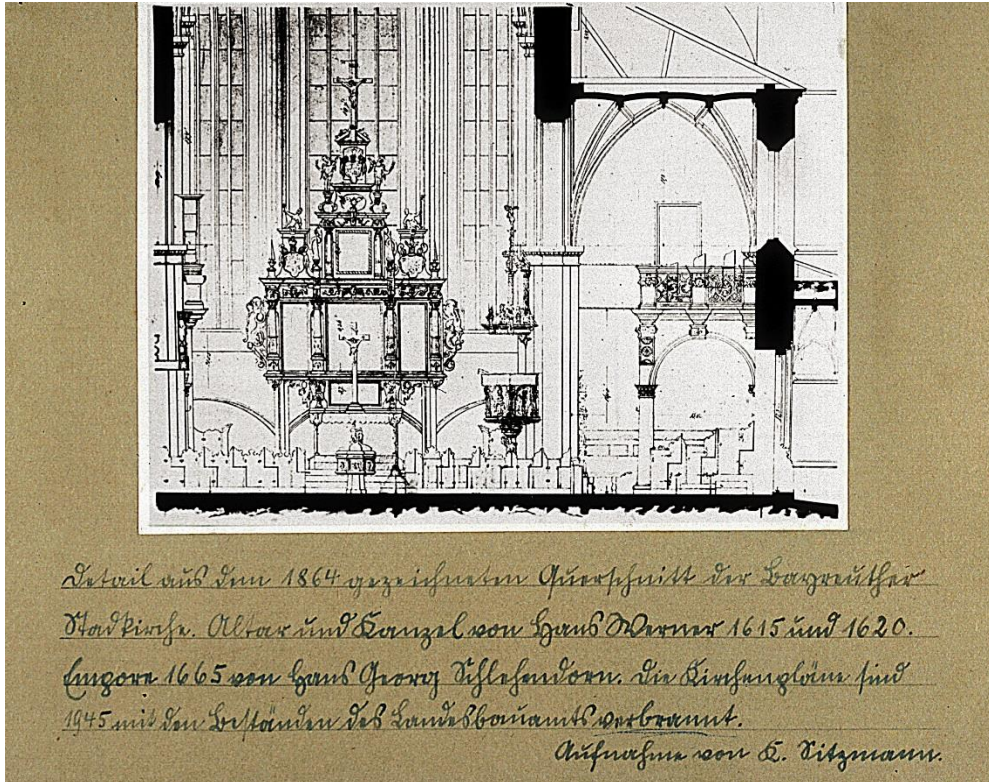 Detail aus dem 1864 gezeichneten Querschnitt der Bayreuther
Stadtkirche. Altar und Kanzel von Hans Werner 1615 und 1620.
Empore 1665 von Hans Georg Schlehendorn. Die Kirchenpläne sind
1945 mit den Beständen des Landesbauamts verbrannt.
Aufnahme von K. Sitzmann.